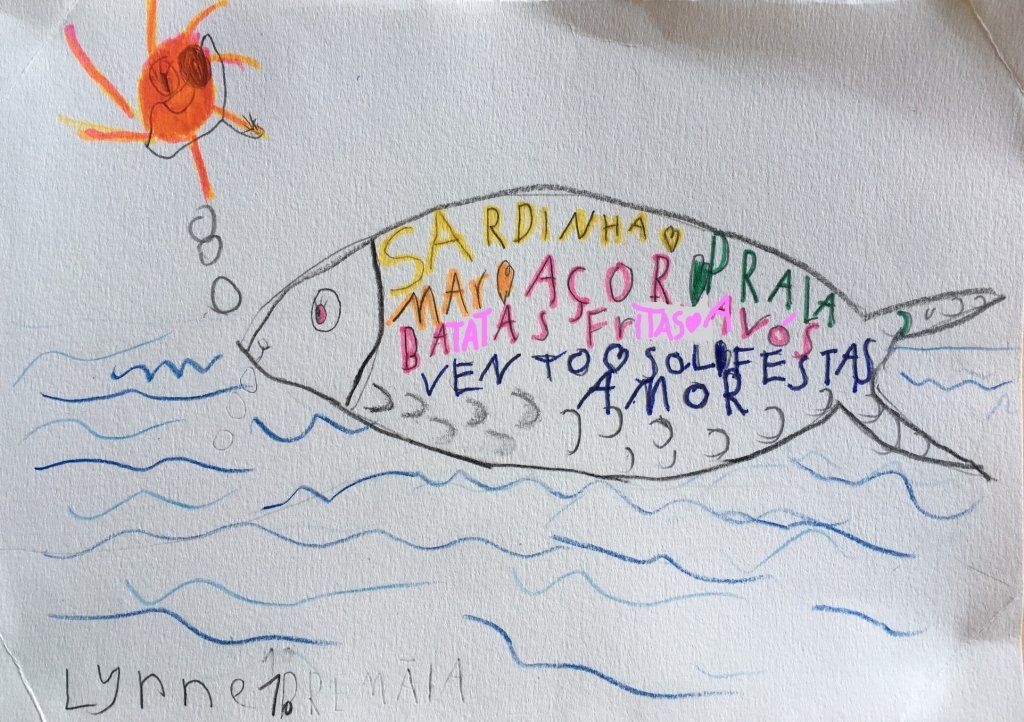 SARDINHA
MAr AÇOR PRAIA
BATATAS FrITAS AVóS
VENTO SOL FESTAS
AMOR
Lynne